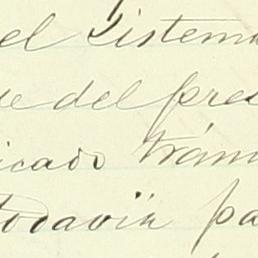 el Sistema
ue del pres
icado trám
todavía pa